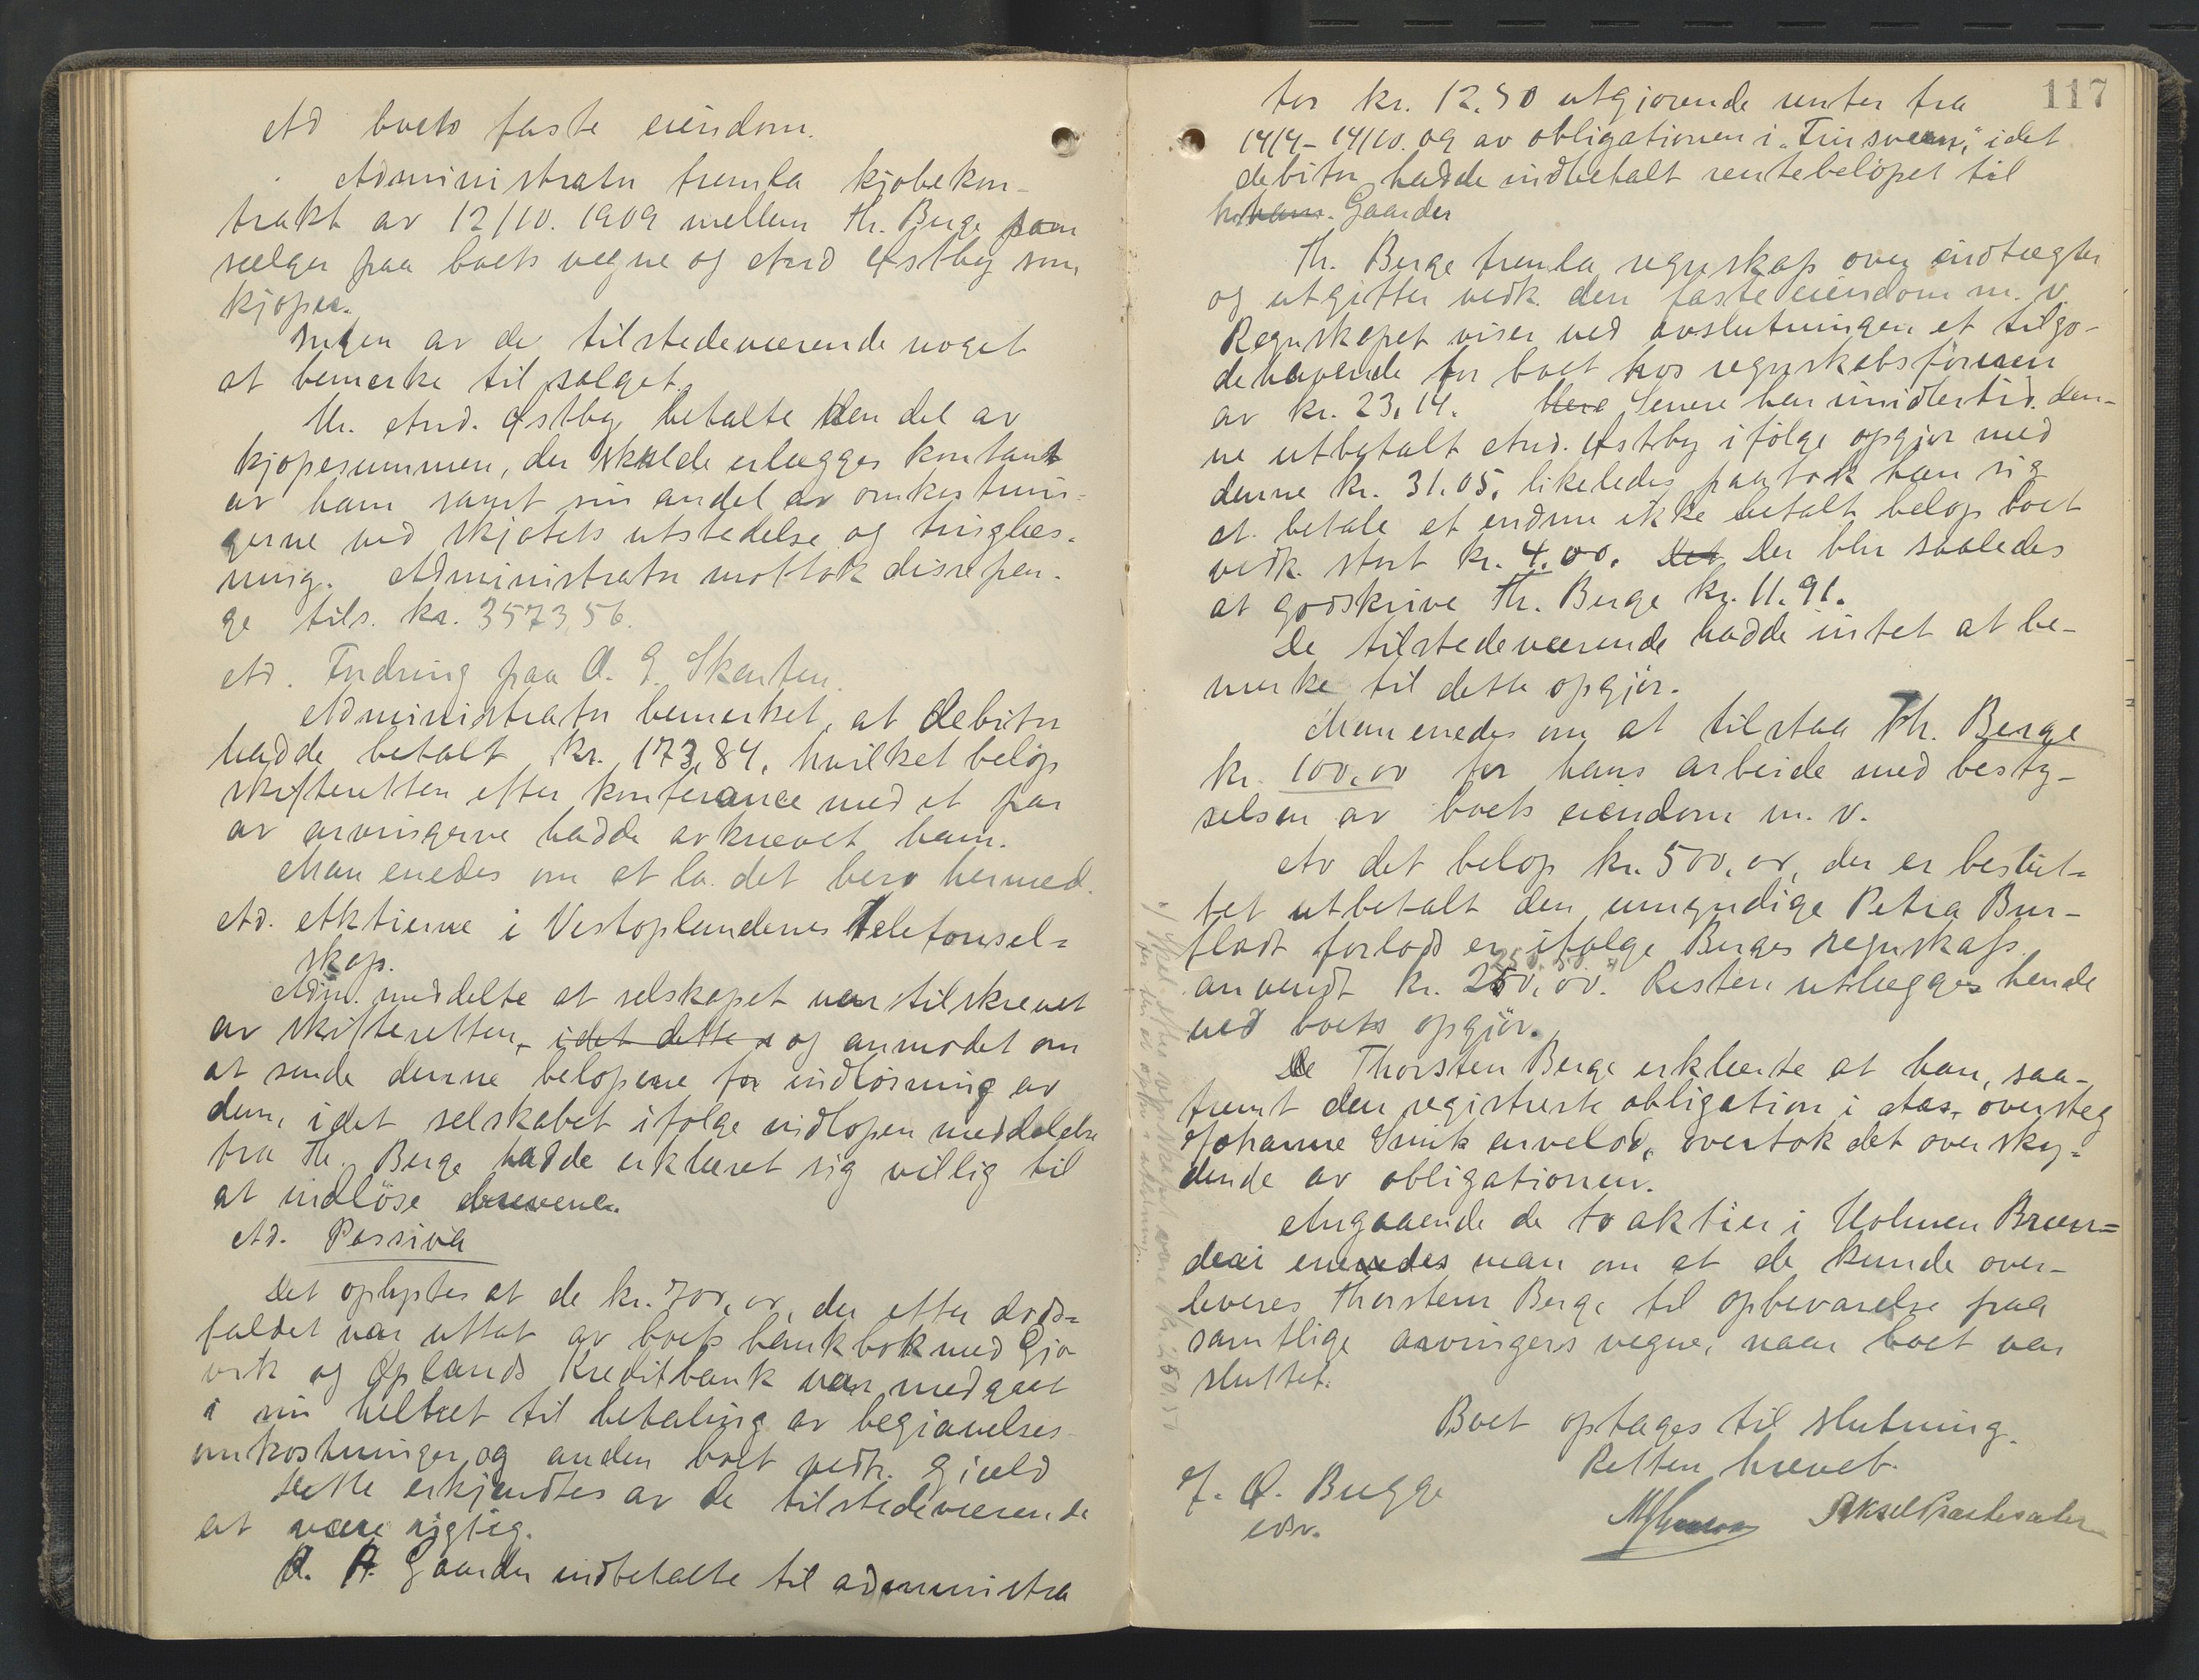 Ad boets faste eiendom.
Administrator fremla kjøbekon-
trakt av 12/10. 1909 mellem Th. Berge som
sælger paa boets vegne og And Østby som
kjøper.
Ingen av de tilstedeværende noget
at bemerke til salget.
Hr. And. Østby betalte den del av
kjøpesummen, der skulde erlægges kontant
av ham samt sin andel av omkostnin-
gerne ved skjøtets utstedelse og tinglæs-
ning. Administrator mottok disse pen-
ge tils. kr. 3573,56.
Ad. Fordring paa O. G. Skarten.
Administrator bemerket, at debitor
hadde betalt kr. 173,84, hvilket beløp
skifteretten efter konferance med et par
av arvingerne hadde avkrævet ham.
Man enedes om at la det bero hermed.
Ad. Aktierne i Vestoplandenes Telefonsel-
skap.
Adm. meddelte at selskapet var tilskrevet
av skifteretten, idet dette og anmodet om
at sende denne beløpene for indløsning av
dem, idet selskabet ifølge indløpen meddelelse
fra Th. Berge hadde erklæret sig villig til
at indløse brevene.
Ad. Passiva
Det oplystes at de kr. 700,00, der efter døds-
faldet var uttat av boets bankbok med Gjø-
vik og Oplands Kreditbank var medgaat
i sin helhet til betaling av begravelses-
omkostninger og anden boet vedk. gjæld
Dette erkjendtes av de tilstedeværende
at være rigtig.
A. Gaarder indbetalte til administra
117
tor kr. 12.50 utgjørende renter fra
14/4 - 14/10. 09 av obligationen i "Finsveen", idet
debitor hadde indbetalt rentebeløpet til
Gaarder
Th. Berge fremla regnskap over indtægter
og utgifter vedk. den faste eiendom m. v.
Regnskapet viser ved avslutningen et tilgo-
dehavende for boet hos regnskabsføreren
av kr. 23,14. Senere har imidlertid den-
ne utbetalt And. Østby ifølge opgjør med
denne kr. 31.05, likeledes paatok han sig
at betale et endnu ikke betalt beløp boet
vedk. stort kr. 4.00. Det Der blir saaledes
at godskrive Th. Berge kr. 11.91.
De tilstedeværende hadde intet at be-
merke til dette opgjør.
Man enedes om at tilstaa Th. Berge
kr. 100,00 for hans arbeide med besty-
relsen av boets eiendom m. v.
Av det beløp kr. 500,00, der er beslut-
tet utbetalt den umyndige Petra Bur-
flødt forlods er ifølge Berges regnskaps
250.50 *)
anvendt kr. 250,00. Resten utlægges hende
ved boets opgjør.
De Thorsten Berge erklærte at han, saa-
fremt den registrerte obligation i Aas, oversteg
Johanne Smik arvelod, overtok det oversky-
dende av obligationen.
Angaaende de to aktier i Holmen Bræn-
deri enedes man om at de kunde over-
leveres Thorstein Berge til opbevarelse paa
samtlige arvingers vegne, naar boet var
sluttet.
Boet optages til slutning.
Retten hævet.
J. O. Bugge
edsv.
*) Skal efter regnskapet være kr. 250,50